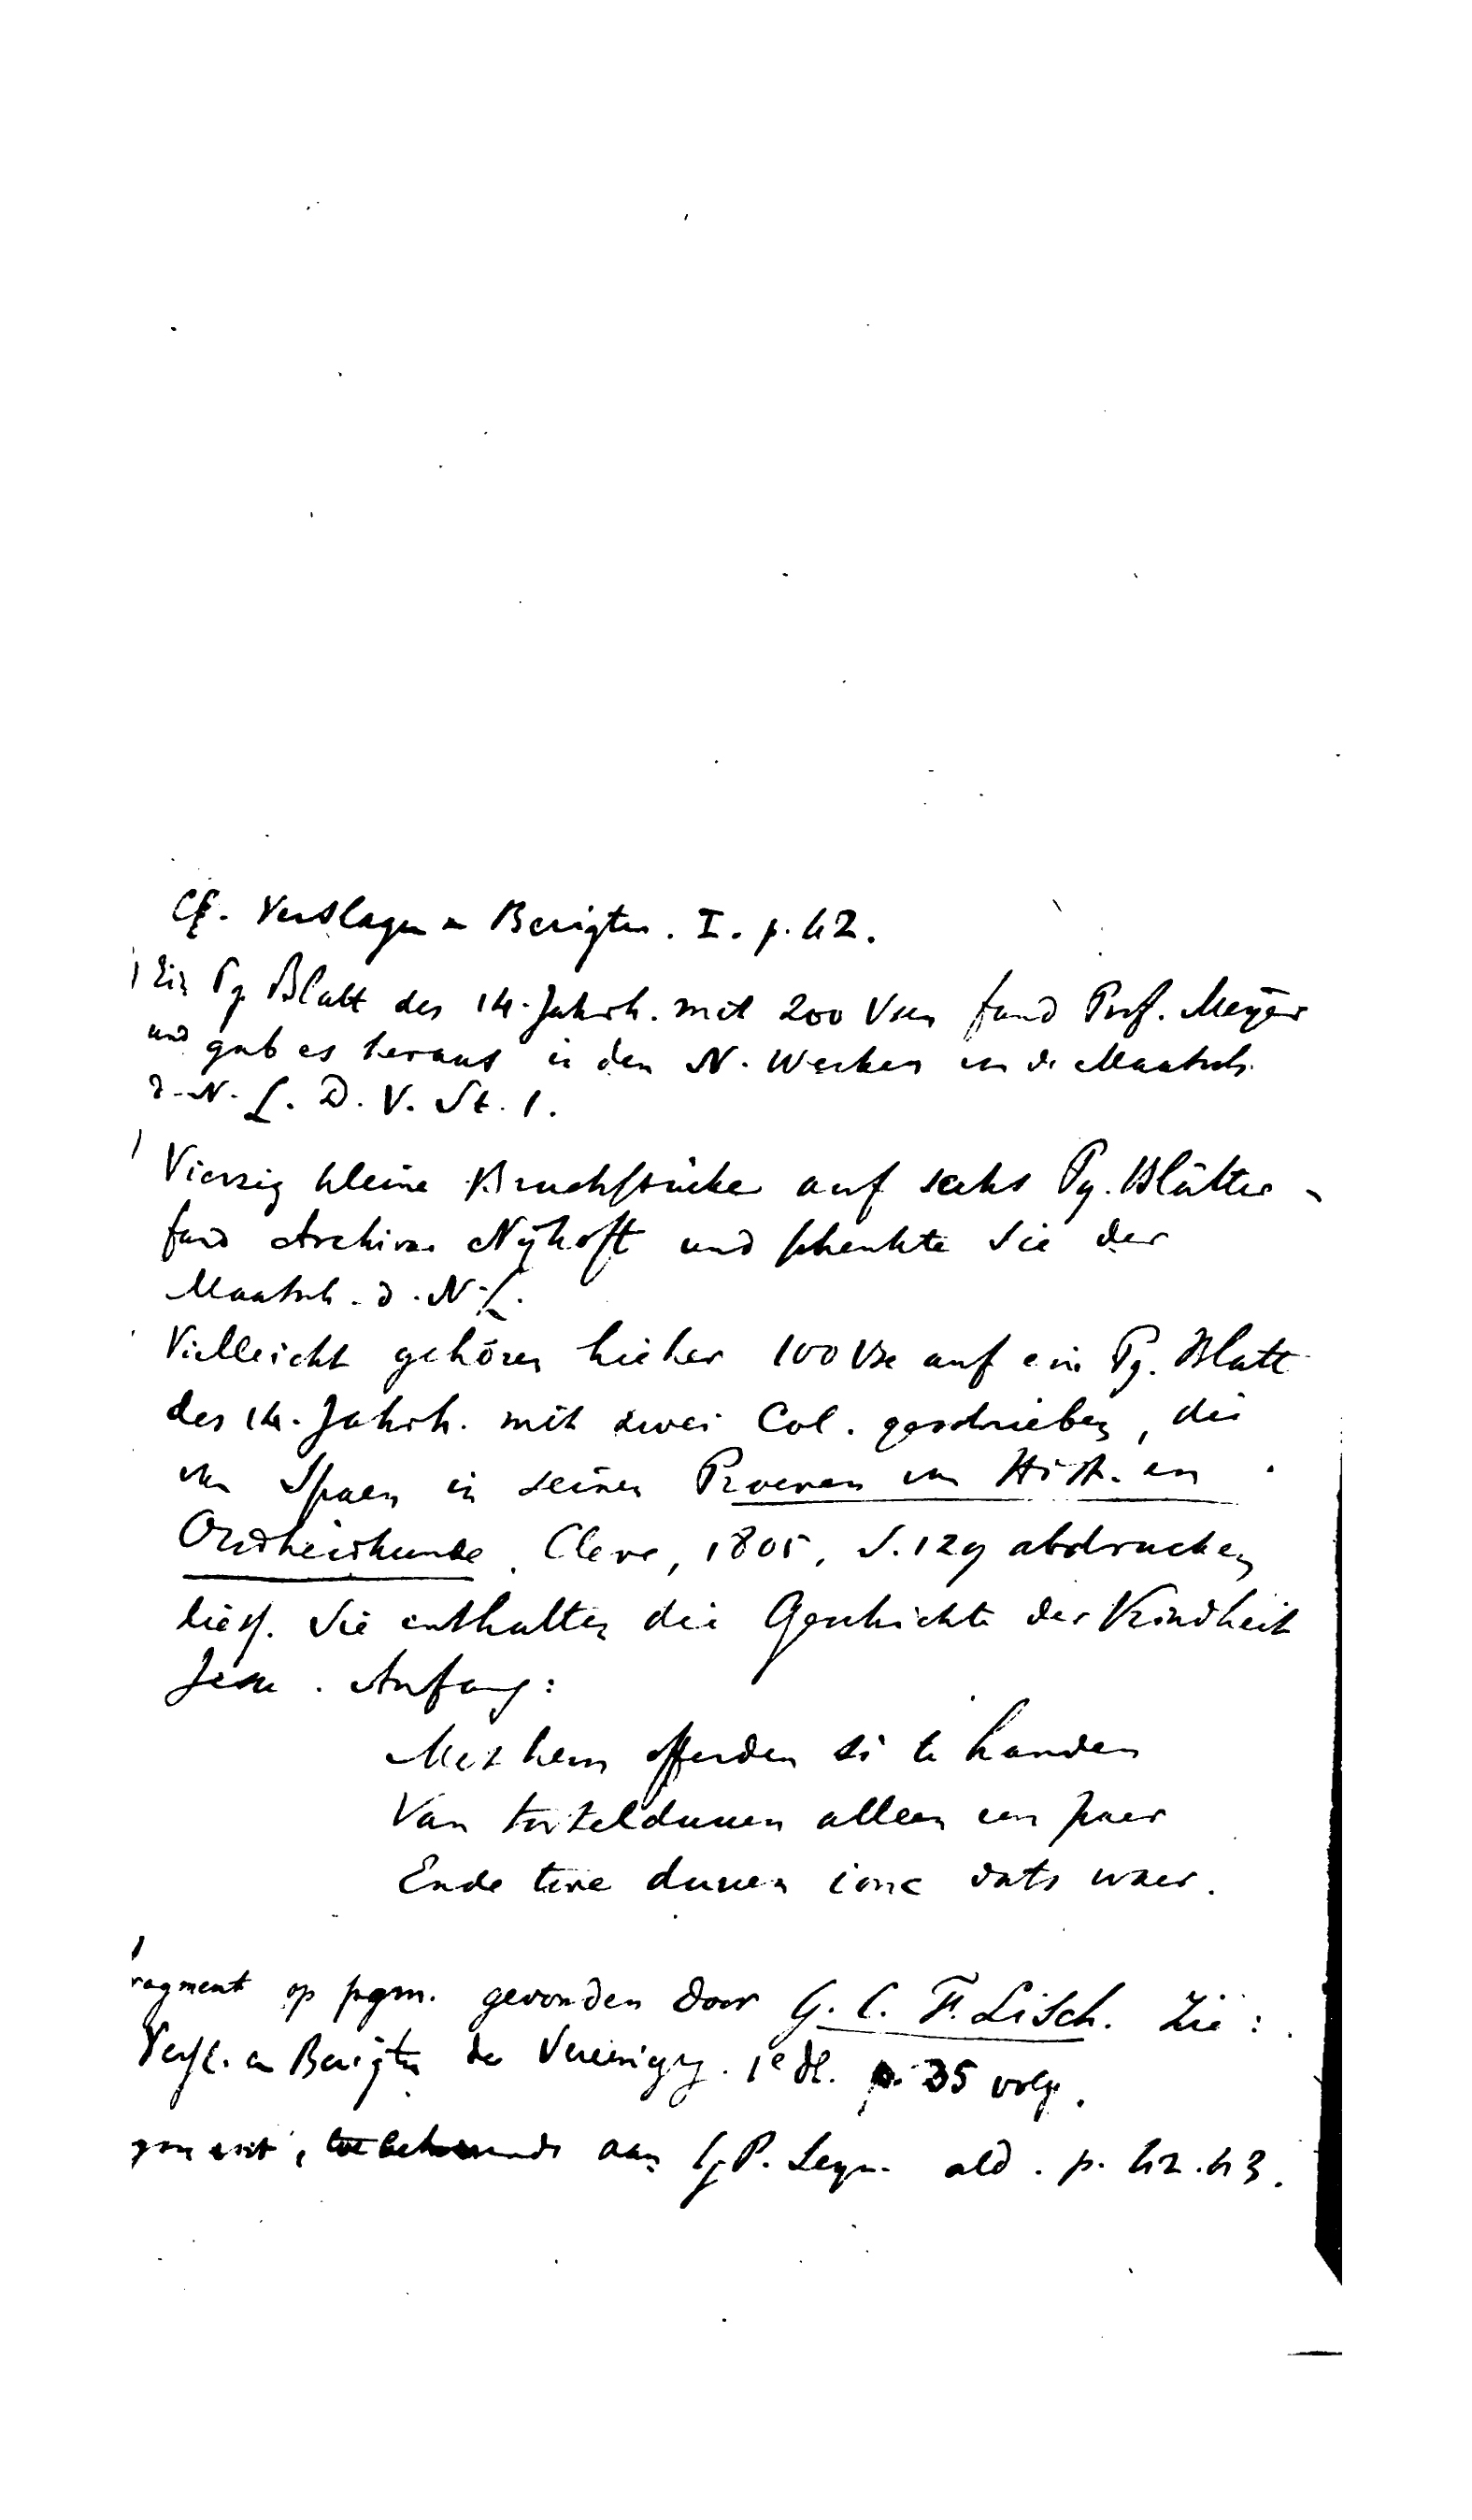 Cf. Verslagen en Berigten. I. p. 42.
Ein Pg. Blatt des 14. Jahrh. mit 200 Vsen fand Prof. Meyer
und gab es heraus in den N. Werken van de Maatsch.
d. N. L. D. V. St. 1.
Vierzig kleine Bruchstücke auf sechs Pg. Blätter
fand Archivar Nyhoff und schenkte sie der
Maatsch. d. N. L.
Vielleicht gehören hieher 100 Vse auf ein Pg. Blatt
des 14. Jahrh. mit zwei Col. geschrieben, die
van Spaen in seinen Proeven van Hist. en
Oudheidkunde. Cleve, 1805, S. 129 abdrucken
liess. Sie enthalten die Geschichte der Kindheit
Jesu. Anfang:
Met hem offerden si te handen
Van torteldunen alleen een paer
Ende twe duuen ionc dats waer.
ragment op pgm. gevonden door G. C. F. Lisch. Zie:
Versl. en Berigten der Vereeniging. 1e dl. p. 35 volg.
aan ald. p. 42.43.